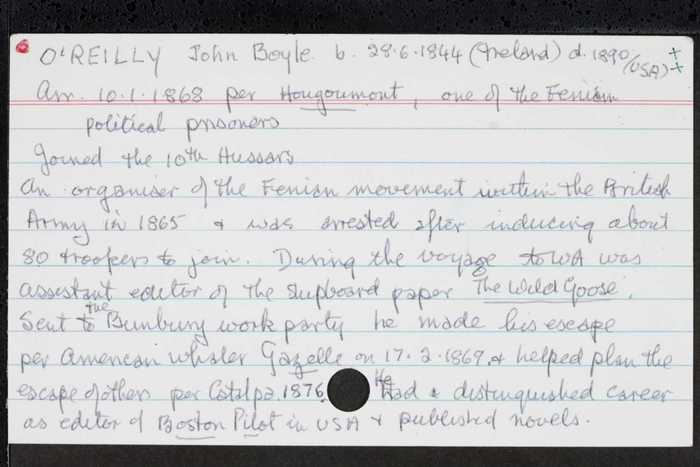 O'REILLY John Boyle. b. 28.6.1844 (Ireland) d. 1890 (USA)
Arr. 10.1.1868 per Hougoumont, one of the Fenian
political prisoners
Joined the 10th Hussars
An organiser of the Fenian movement within the British
Army in 1865 & was arrested after inducing about
80 troopers to join. During the voyage to WA was
assistant editor of the shipboard paper The Wild Goose.
Sent to the Bunbury work party he made his escape
per American whaler Gazelle on 17.2.1869, & helped plan the
escape of others per Catalpa 1876. He had a distinguished career
as editor of Boston Pilot in USA & published novels.